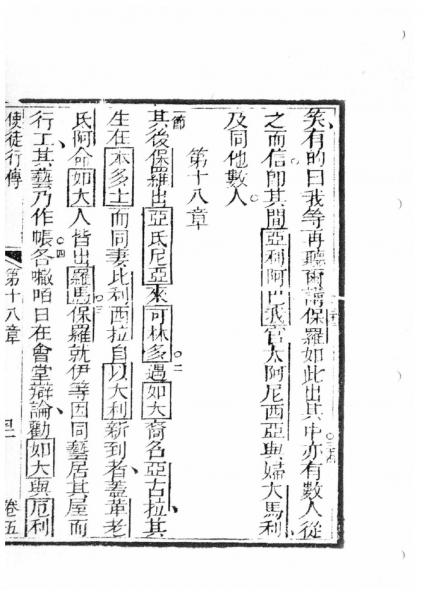 矣有的曰我等再聽爾講保羅如此出其中三四亦有數人從
之而信即其間亞利阿巴我官大阿尼西亞與婦大馬利
及同他數人
第十八章
節其後保羅出亞氏尼亞來可林多二遇如大裔名亞古拉其
生在本多上而同妻比利西拉自以大利新到者蓋革老
氏阿命如大人皆出羅馬三保羅就伊等因同藝居其屋而
行工其藝乃作帳四各囐咟日在會堂辯論勸如大與厄利
使徒行傳 第十八章 卷五